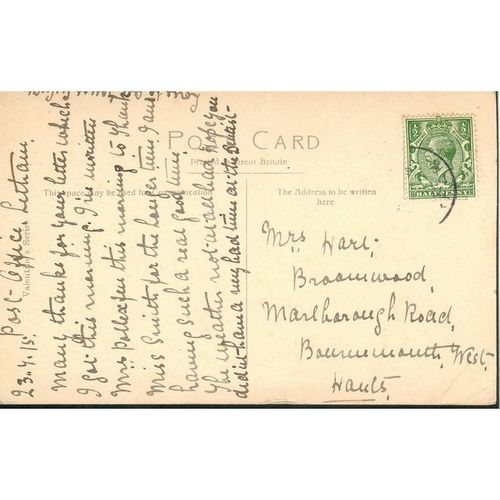 POST CARD
Printed in Great Britain.
This space may be used for communication
The Address to be written
here
Valentine's Series
HALFPENNY
Post-Office. Letham.
23.4.15.
Many thanks for your letter which
I got this morning. I've written
Mrs this morning to thank
Miss Smith for the longer time I am
having such a real good time.
The weather not hope you
did'nt have a very bad time at the Dentist-
Mrs Hart.
Broomwood,
Marlborough Road,
Bournemouth, West.
Hants.